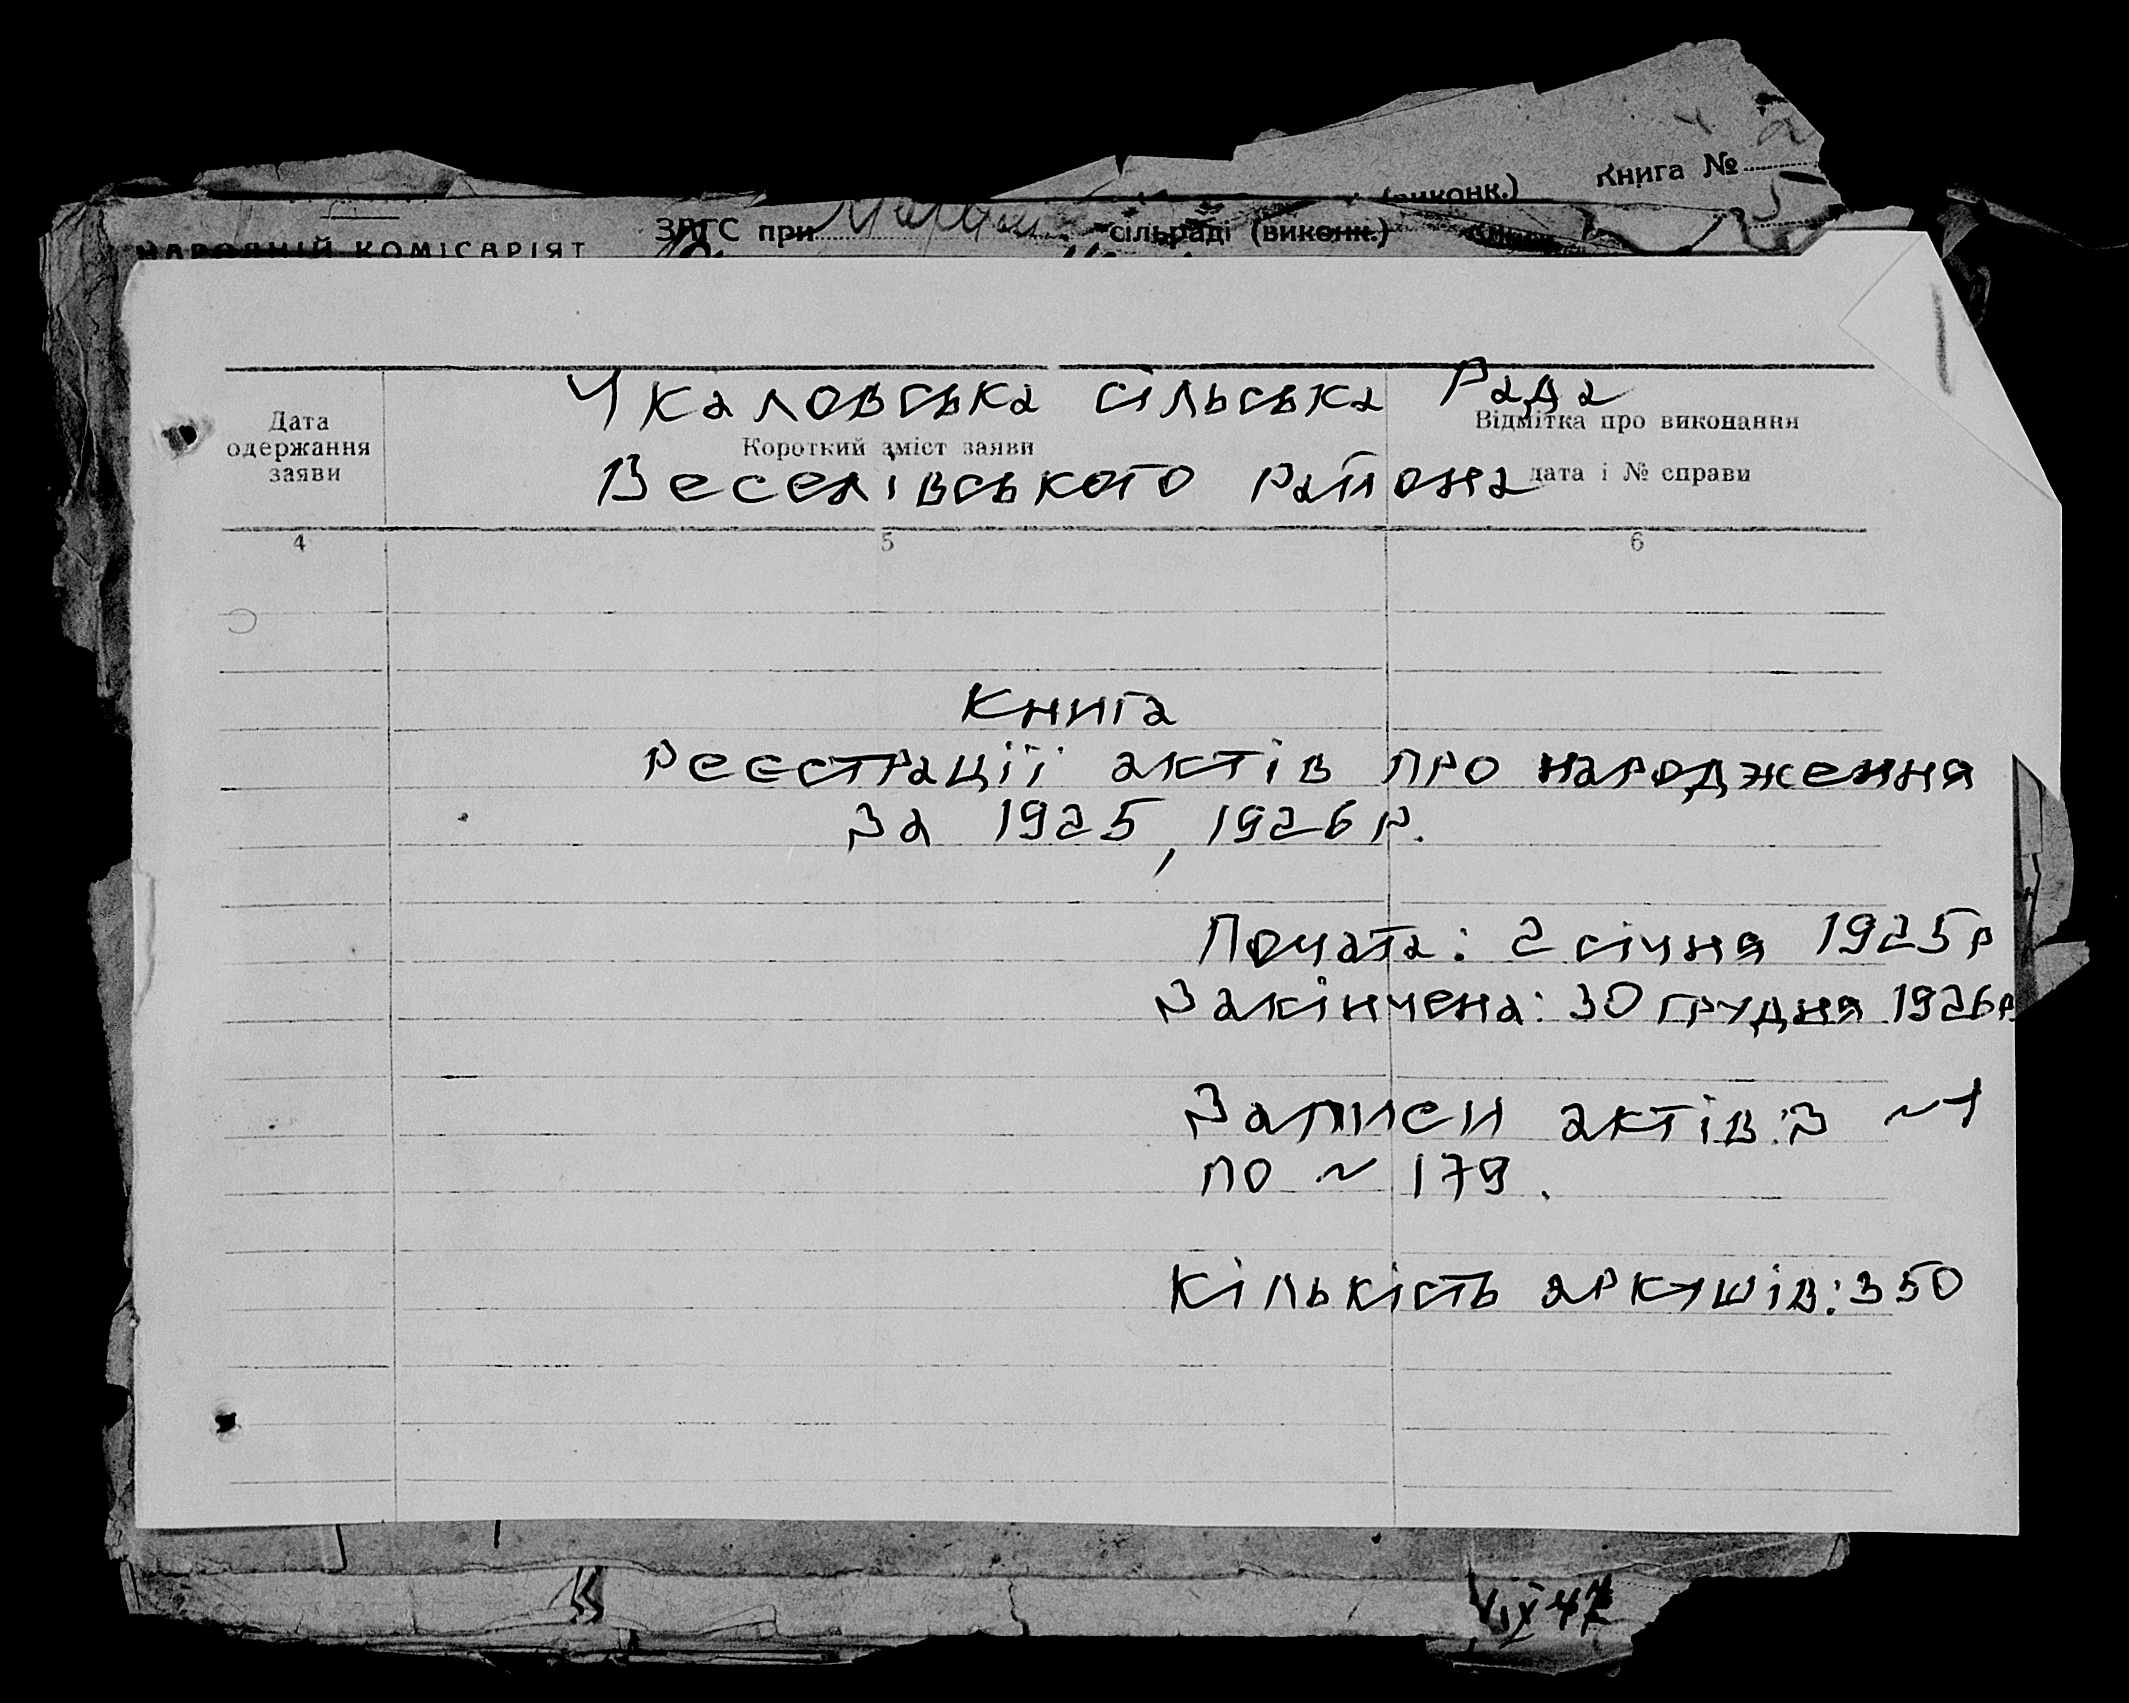 Книга №
(виконк.)
НАРОДНІЙ КОМІСАРІЯТ
ЗАГС при сільраді (виконк.)
Чкаловська сільська Рада
Дата одержання заяви
Короткий зміст заяви
Відмітка про виконання
дата і № справи
Веселівського району
4 5 6
Книга
реєстрації актів про народження
за 1925, 1926 р.
Почата: 2 січня 1925 р
Закінчена: 30 грудня 1926 р
Записи актів: З ~ 1
по ~ 179.
Кількість аркушів: 350